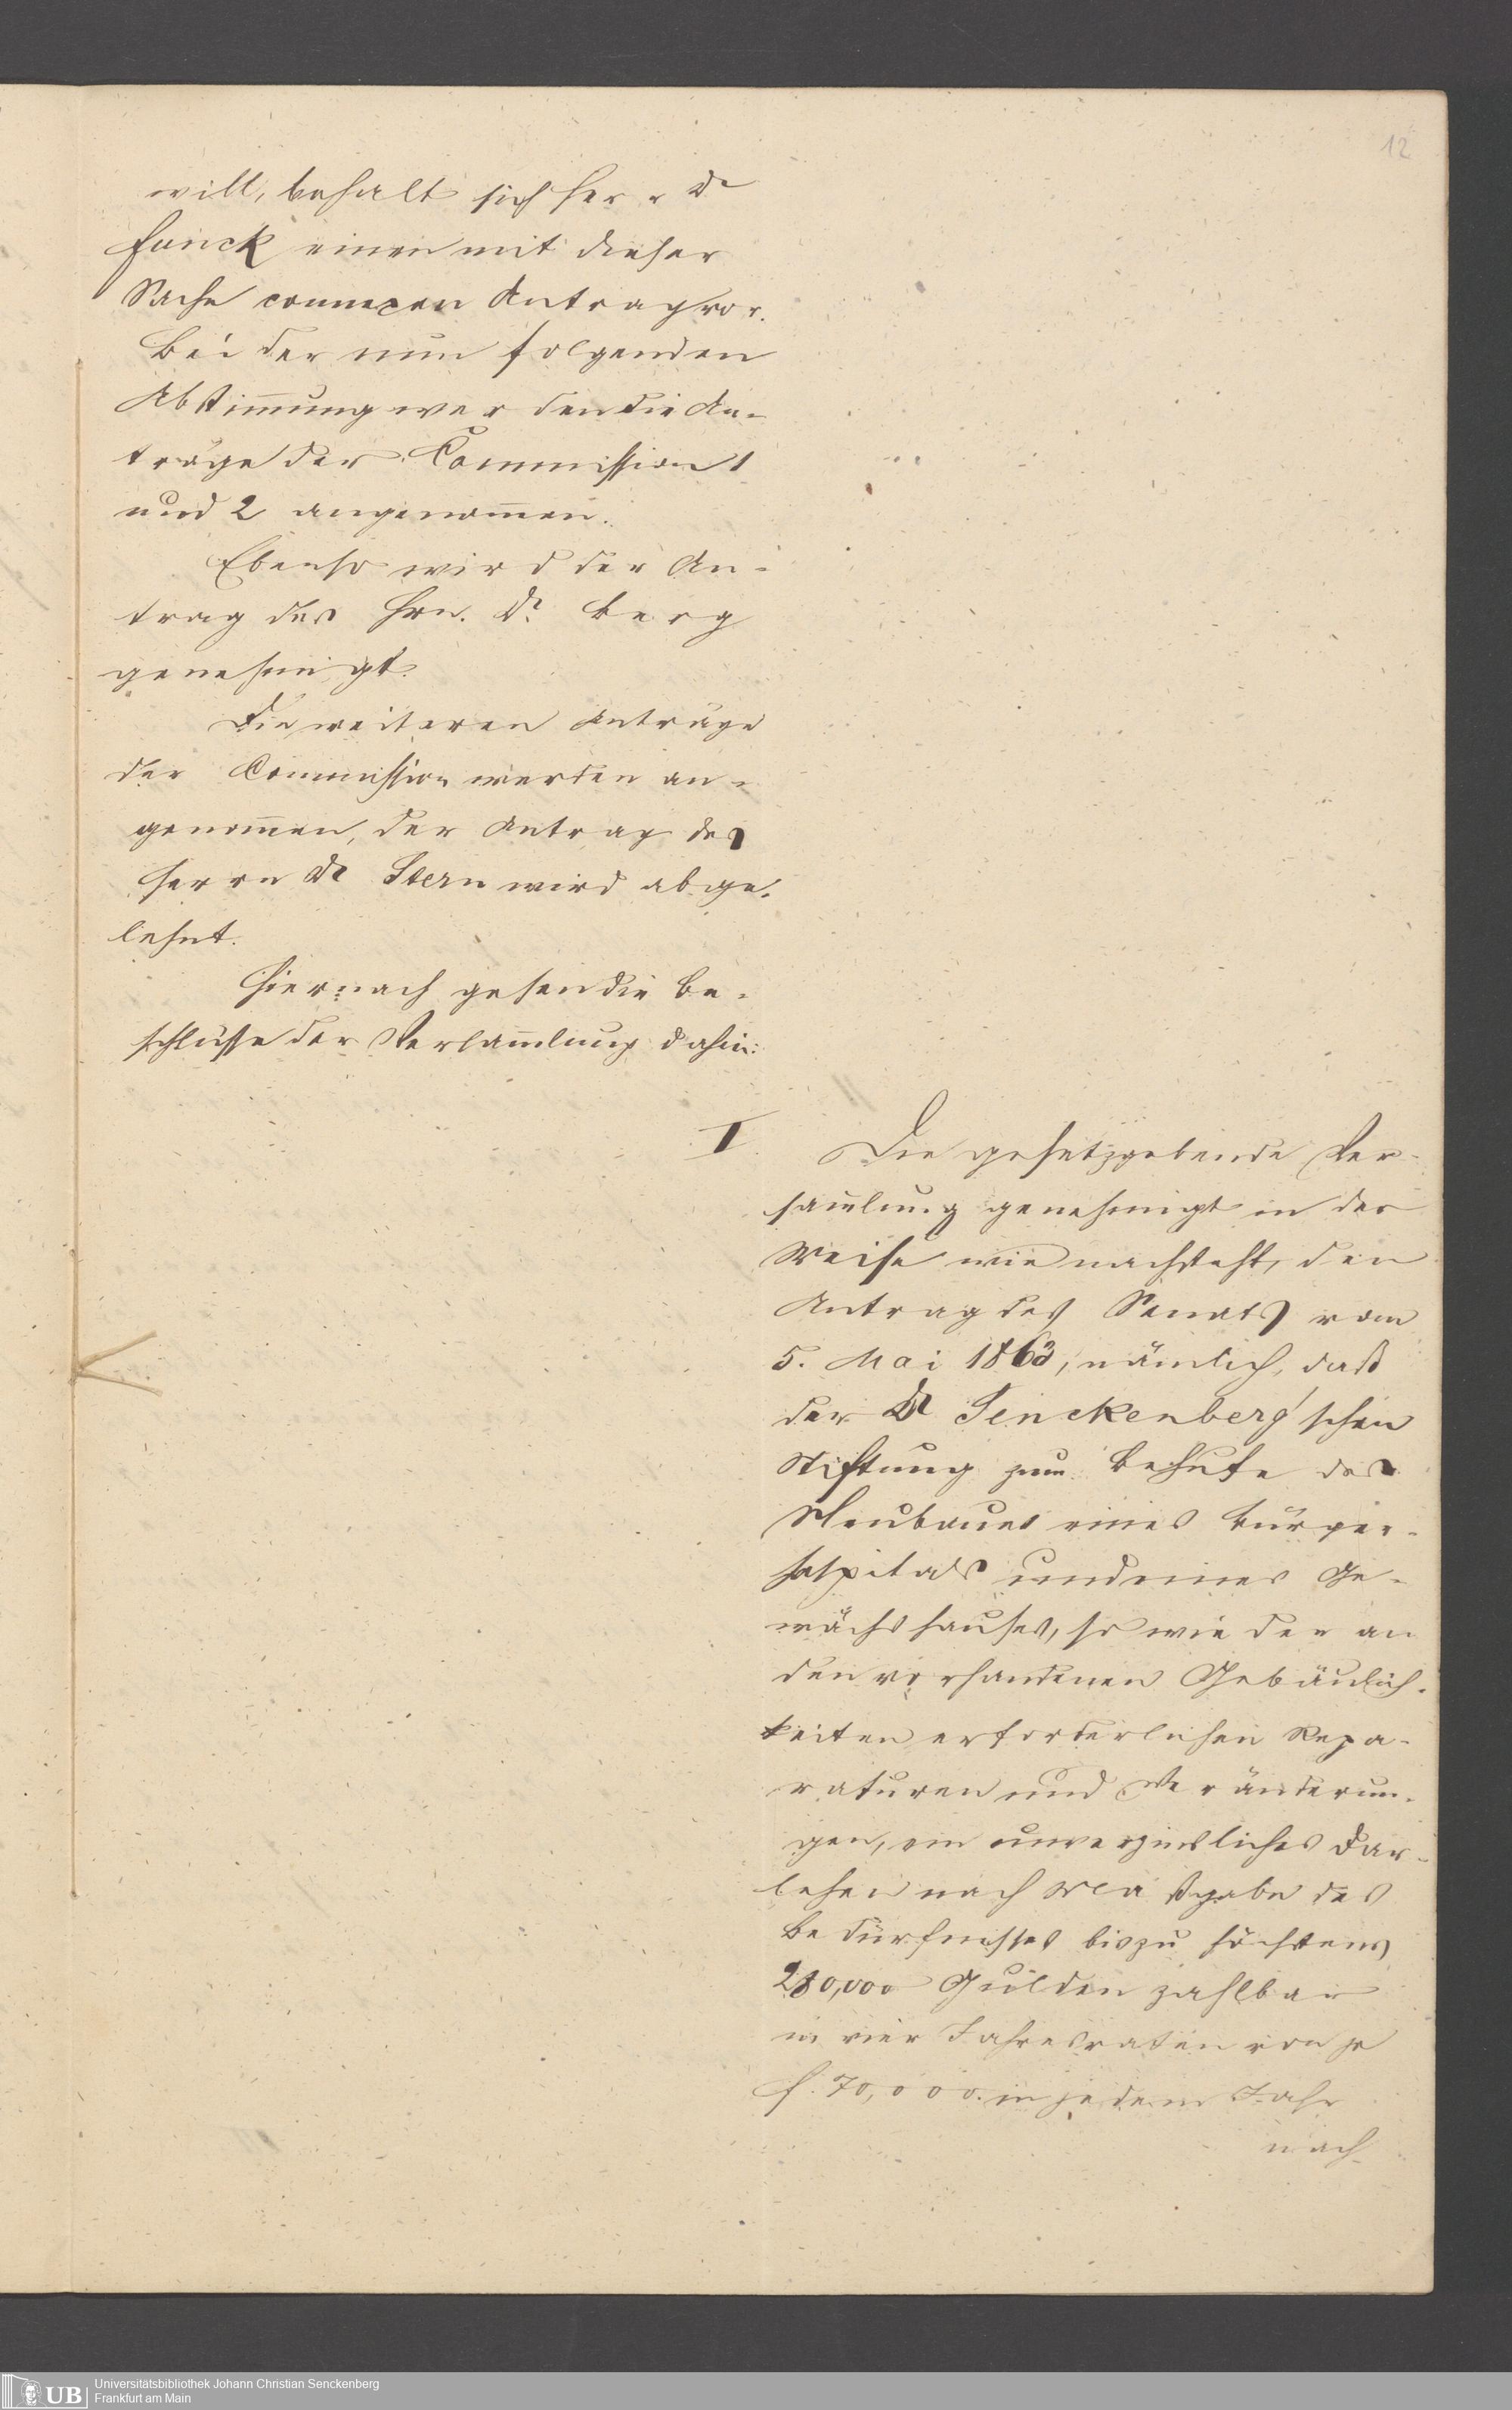 12
will, behalt sich Herr Dr
Funck einen mit dieser
Sache connexen Antrag vor.
Bei der nun folgenden
Abstim̄ung werden die An-
träge der Commission 1
und 2 angenom̄en.
Ebenso wird der An-
trag des Hrn. Dr. Berg
genehmigt.
Die weiteren Anträge
der Commission werden an-
genom̄en, der Antrag des
Herrn Dr Stern wird abge-
lehnt.
Hiernach gehen die Be-
schlüsse der Versam̄lung dahin:
I. Die gesetzgebende Ver-
sam̄lung genehmigt in der
Weise wie nachsteht, den
Antrag des Senats vom
5. Mai 1863, nämlich, daß
der Dr Senckenberg'schen
Stiftung zum Behufe des
Neubaues eines Bürger-
hospitals und eines Ge-
wächshauses, so wie der an
den vorhandenen Gebäulich-
keiten erforderlichen Repa-
raturen und Veränderun-
gen, ein unverzinsliches Dar-
lehen nach Maßgabe des
Bedürfnisses bis zu höchstens
280,000 Gulden zahlbar
in vier Jahresraten von je
f. 70,000. in jedem Jahr
nach
UB
Universitätsbibliothek Johann Christian Senckenberg
Frankfurt am Main